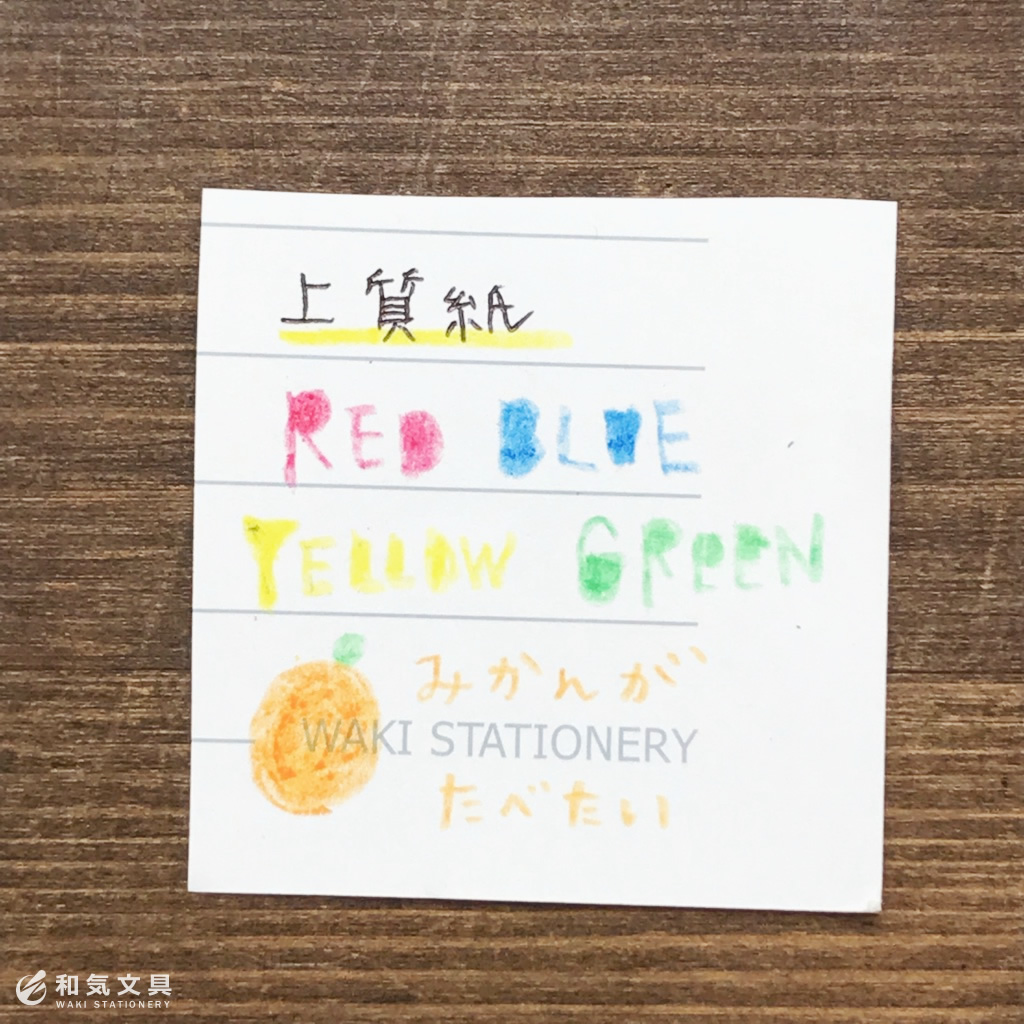 上質紙
RED BLUE
YELLOW GREEN
みかんが
WAKI STATIONERY
たべたい
和気文具
WAKI STATIONERY